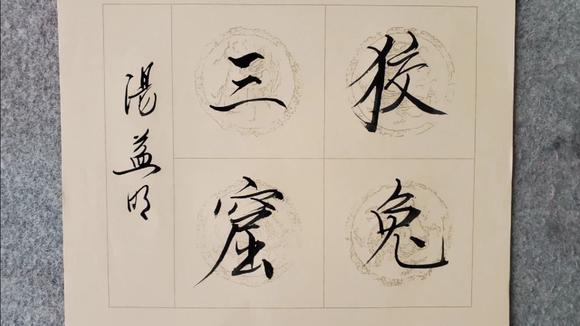 狡兔
三窟
湯益明